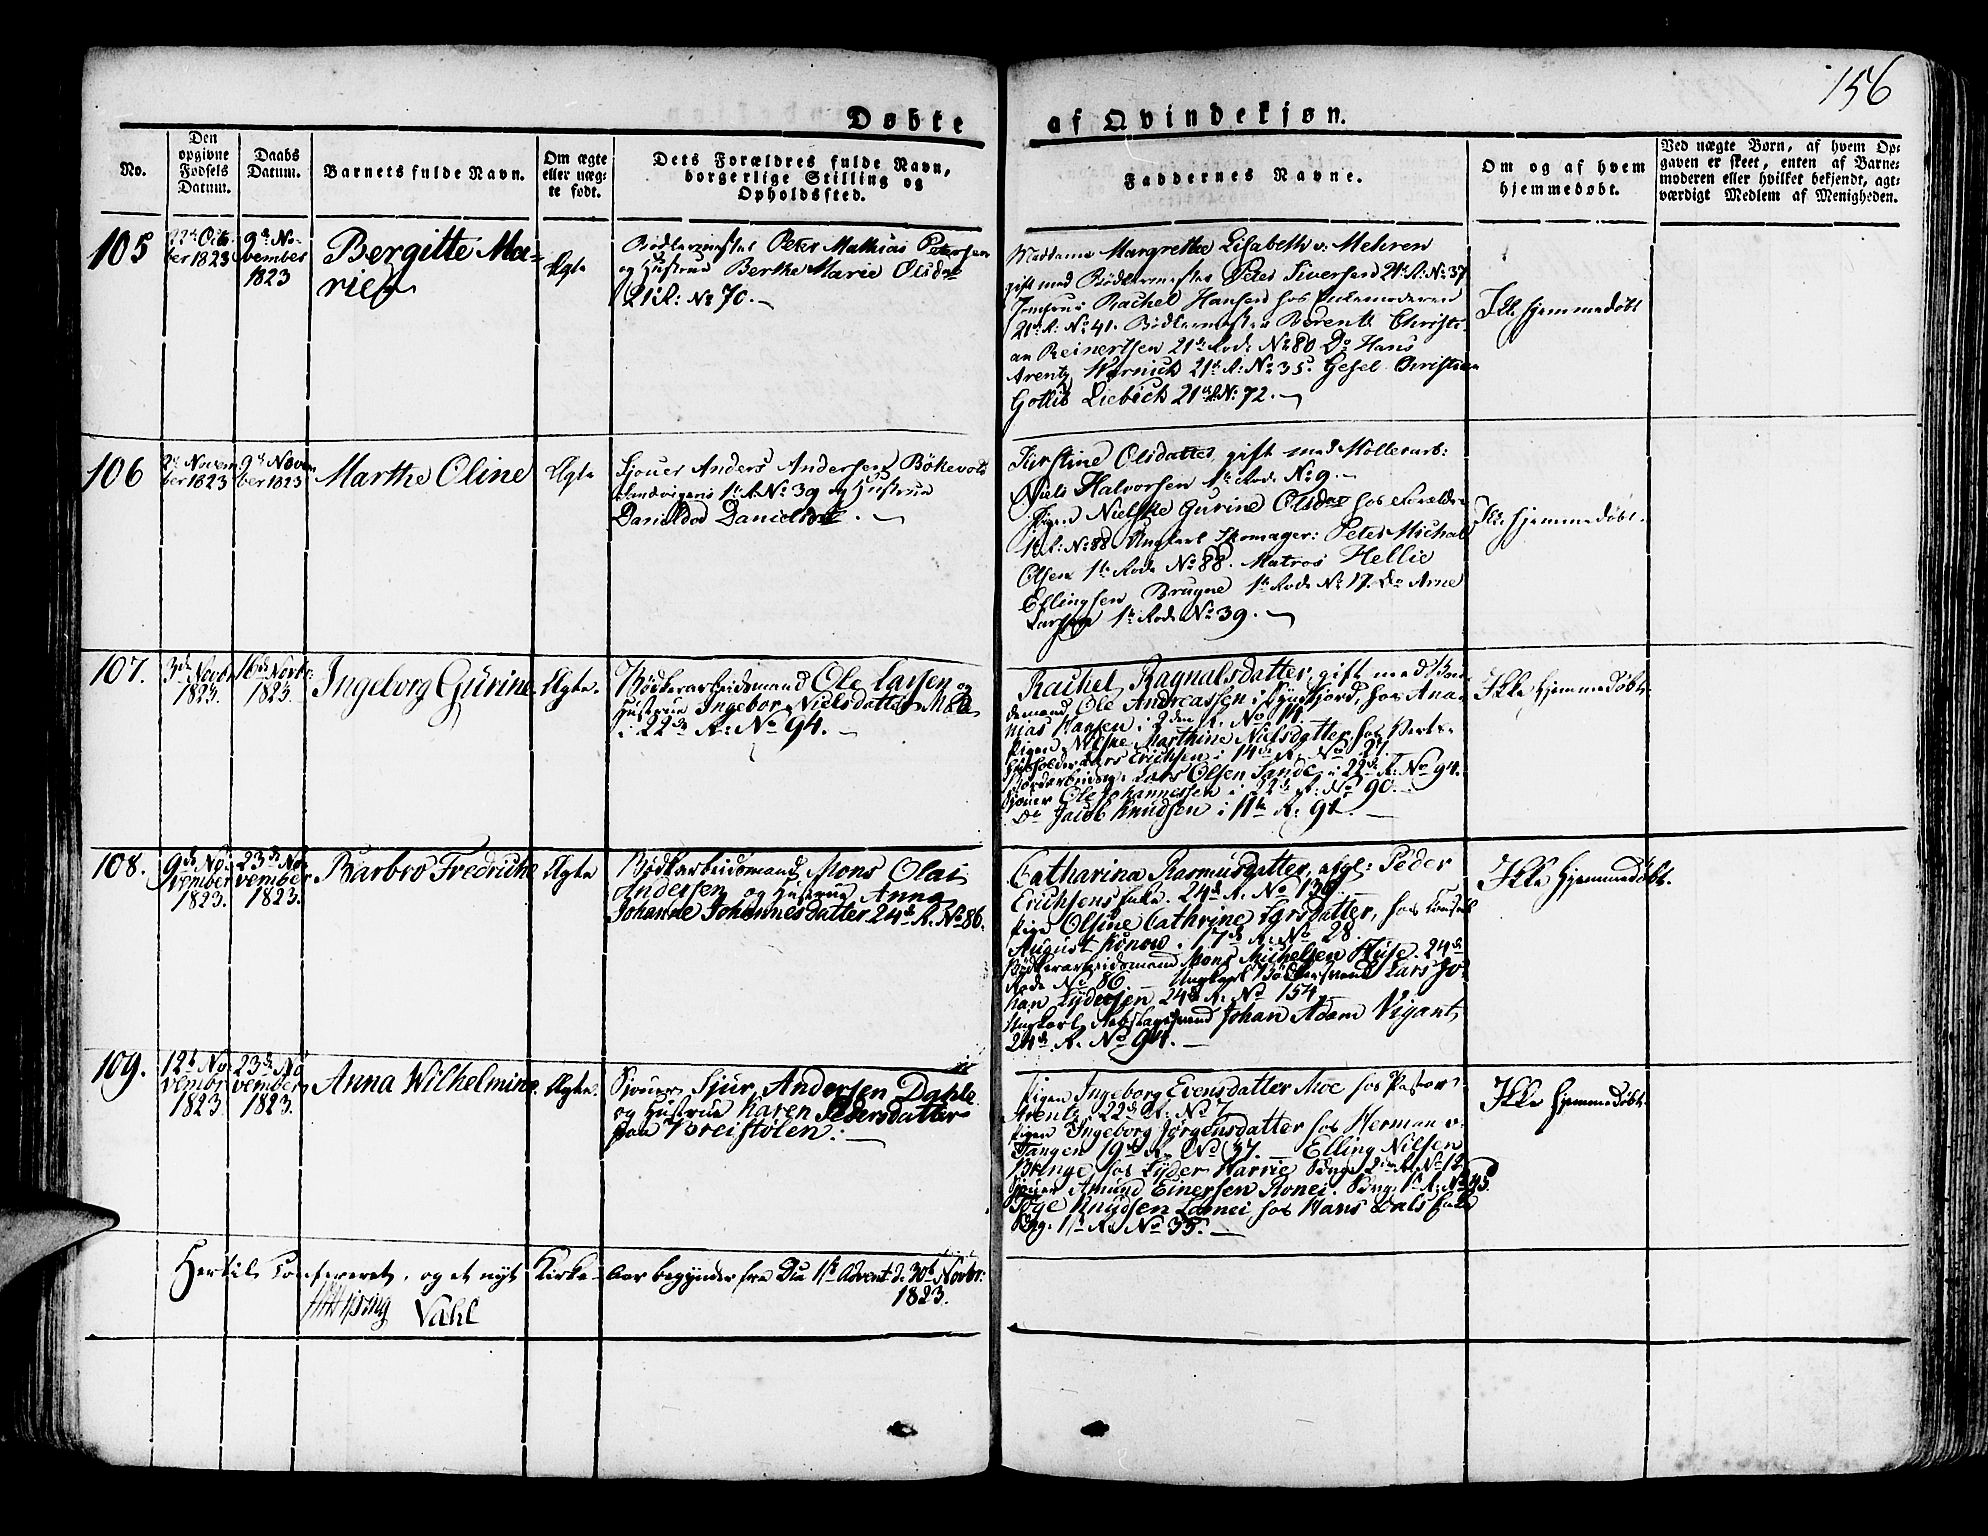 156
Døbte af Qvindekjøn.
No.
Den opgivne Fødsels Datum.
Daabs Datum.
Barnets fulde Navn.
Om ægte eller nægte født.
Dets Forældres fulde Navn, borgerlige Stilling og Opholdssted.
Faddernes Navne.
Om og af hvem hjemmedøbt.
Ved nægte Børn, af hvem Opgaven er skeet, enten af Barnemoderen eller hvilket bekjendt, agtværdigt Medlem af Menigheden.
105
ber 1823
9de No-
vember
1823
Bergitte Ma-
rie
Ægte
Bødkermester Peter Mathias Petersen
og Hustrue Berthe Marie Olsdr
21 R: No 70.
Madame Margrethe Lisabeth v: Mehren
gift med Bødkermester Peter Siversen 21 R: No 37
Jomfrue Rachel Hansen hos
21 R: No 41. Bødkermester Berent Christi-
an Reinertsen 21 Rode No 80 Do Hans
Arentz Warnich 21 R: No 35. Gesel Christian
Gotlib Liebich 21 R No: 72.
Ikke hjemmedøbt
106
2de Novem
ber 1823
9de Novem
ber 1823
Marthe Oline
Ægte
Sjouer Anders Andersen Bøkevold
Sandvigens 1te R: No 39 og Hustrue
Danieldsdr.
Kirstine Olsdatter gift med Møllerarb:
Niels Halvorsen 1te Rode No 9.
Pigen Nielske Gurine Olsdr hos Forældre
1te R: No 88 Ungkarl Skomager: Peter Michal
Olsen 1te Rode No 88. Matros Hellie
Ellingsen Brugne 1te Rode No 17. Do Arne
Larsen 1te Rode No 39.
Ikke hjemmedøbt.
107.
3de Novbr
1823.
16de Novbr:
1823.
Ingeborg Gurine
Ægte.
Bødkerarbeidsmand Ole Larsen og
Hustrue Ingebor Nielsdatter
i 22de R: No 94.
Rachel Ragnalsdatter, gift med Bon-
demand Ole Andreassen i Syndfjord, hos Ana-
nias Hansen i 2den R. No 14.
Pigen Nilske Marthine Nielsdatter hos Verts-
husholder Lars Erichsen i 14de R. No 27.
Lars Olsen Sande i 22de R. No 94.
Sjouer Ole Johannessen i 22de R. No 90.
Do Jacob Knudsen i 11te R. 91.
Ikke hjemmedøbt.
108.
9de No-
vember
1823.
23de No-
vember
1823.
Barbro Fredriche
Ægte
Bødkerarbeidsmand Mons Olai
Andersen og Hustrue Anna
Johanne Johannesdatter 24de R. No 86.
Catharina Rasmusdatter, afgl: Peder
Erichsens Enke. 24de R. No 136.
Pige Olsine Cathrine Larsdatter, hos Consul
August Konow i 17de R. No 28.
Bødkerarbeidsmand Mons Michelsen Huse 24de
Rode No 86. Ungkarl Bødkersvend Lars Jo-
han Lydersen 24de R. No 154
Ungkarl Johan Adam Vigant,
24de R. No 94.
Ikke hjemmedøbt.
109.
12te No-
vembr
1823.
23de No-
vember
1823.
Anna Wilhelmine
Ægte.
Sjouer Sjur Andersen Dahle
og Hustrue Karen Pedersdatter
paa Breistolen.
Pigen Ingeborg Evensdatter Moe hos Pastor
Arentz 22de R: No 7.
Pigen Ingeborg Jørgensdatter hos Herman v.
Tangen 19de R. No 37. Elling Nilsen
Brunge hos Lyder Harrie 2den R. No 12
Sjouer Amund Einersen Ronei. 1te R: No 95.
Knudsen Larnei hos Hans Dals Enke
1te R. No 35.
Ikke hjemmedøbt.
Hertil Confereret, og et nyt Kirke-Aar begynder fra Die 1ste Advent d. 30te Novbr:
1823.
Vahl